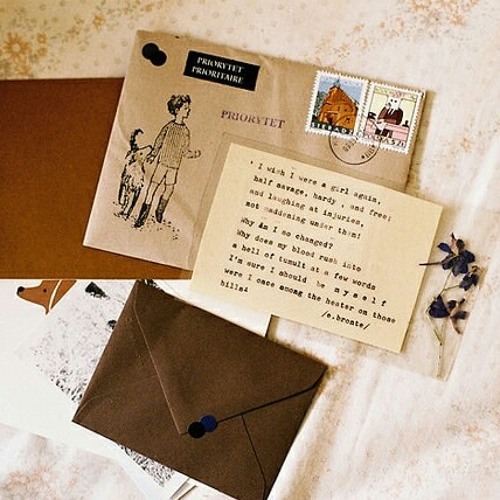 PRIORYTET
PRIORITAIRE
PRIORYTET
SIERADZ
POLSKA
' I wish I were a girl again,
half savage, hardy , and free;
and laughing at injuries,
not maddening under them!
Why am I so changed?
Why does my blood rush into
a hell of tumult at a few words
I'm sure I should be m y s e l f
were I once among the heater on those
hills'
/e.bronte/